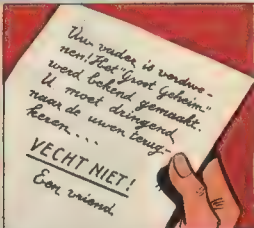 Uw vader is verdwe-
nen! Het "Groot Geheim"
werd bekend gemaakt.
U moet dringend
naar de uwen terug-
keren...
VECHT NIET!
Een vriend